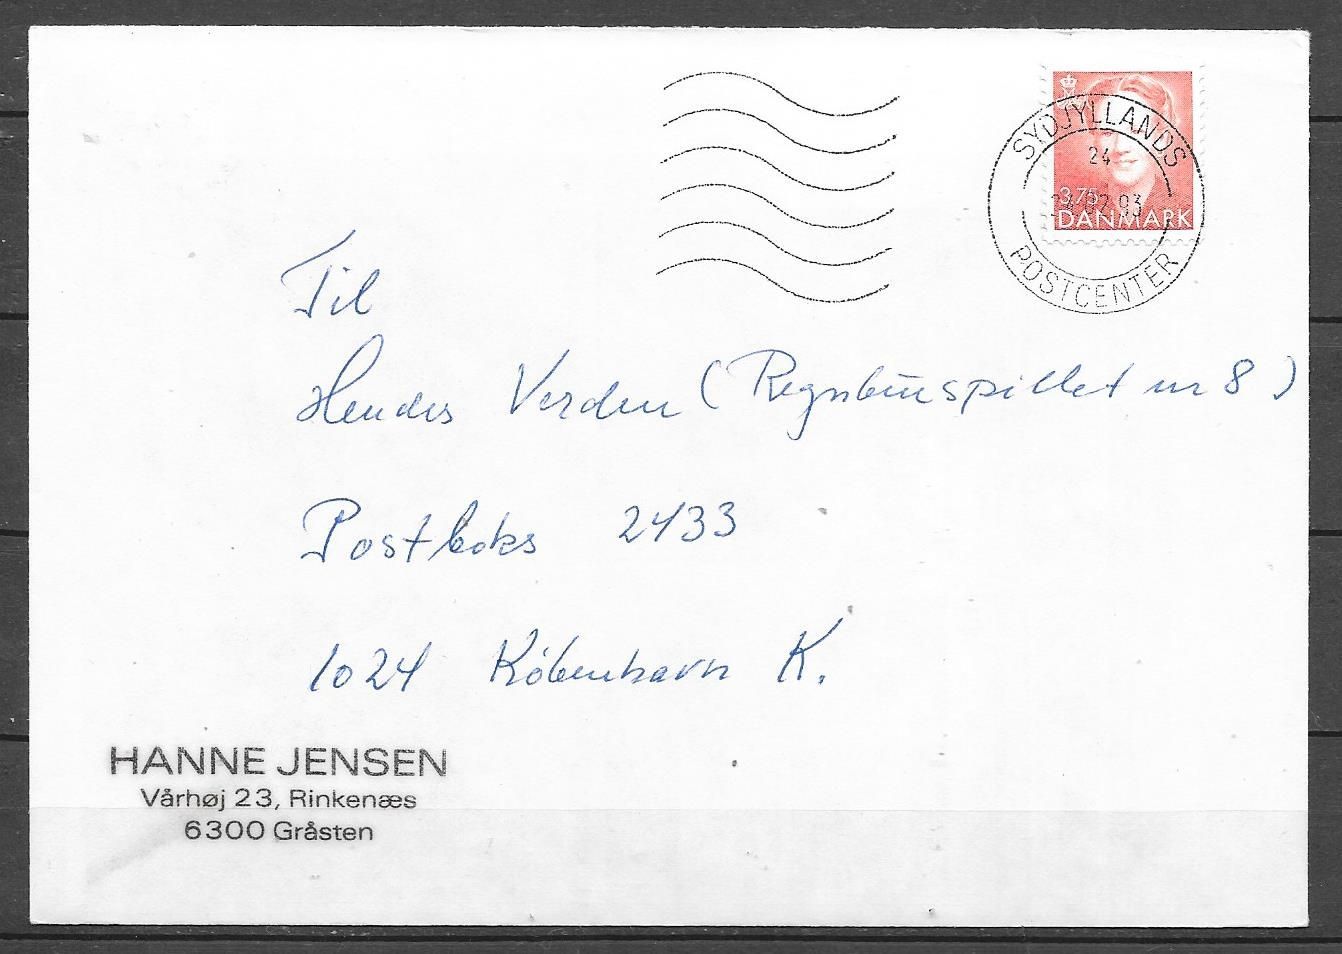 SYDJYLLANDS
24
24.02.93
POSTCENTER
3.75
DANMARK
Til
Hendes Verden (Regnbuespillet nr 8)
Postboks 2433
1024 København K.
HANNE JENSEN
Vårhøj 23, Rinkenæs
6300 Gråsten